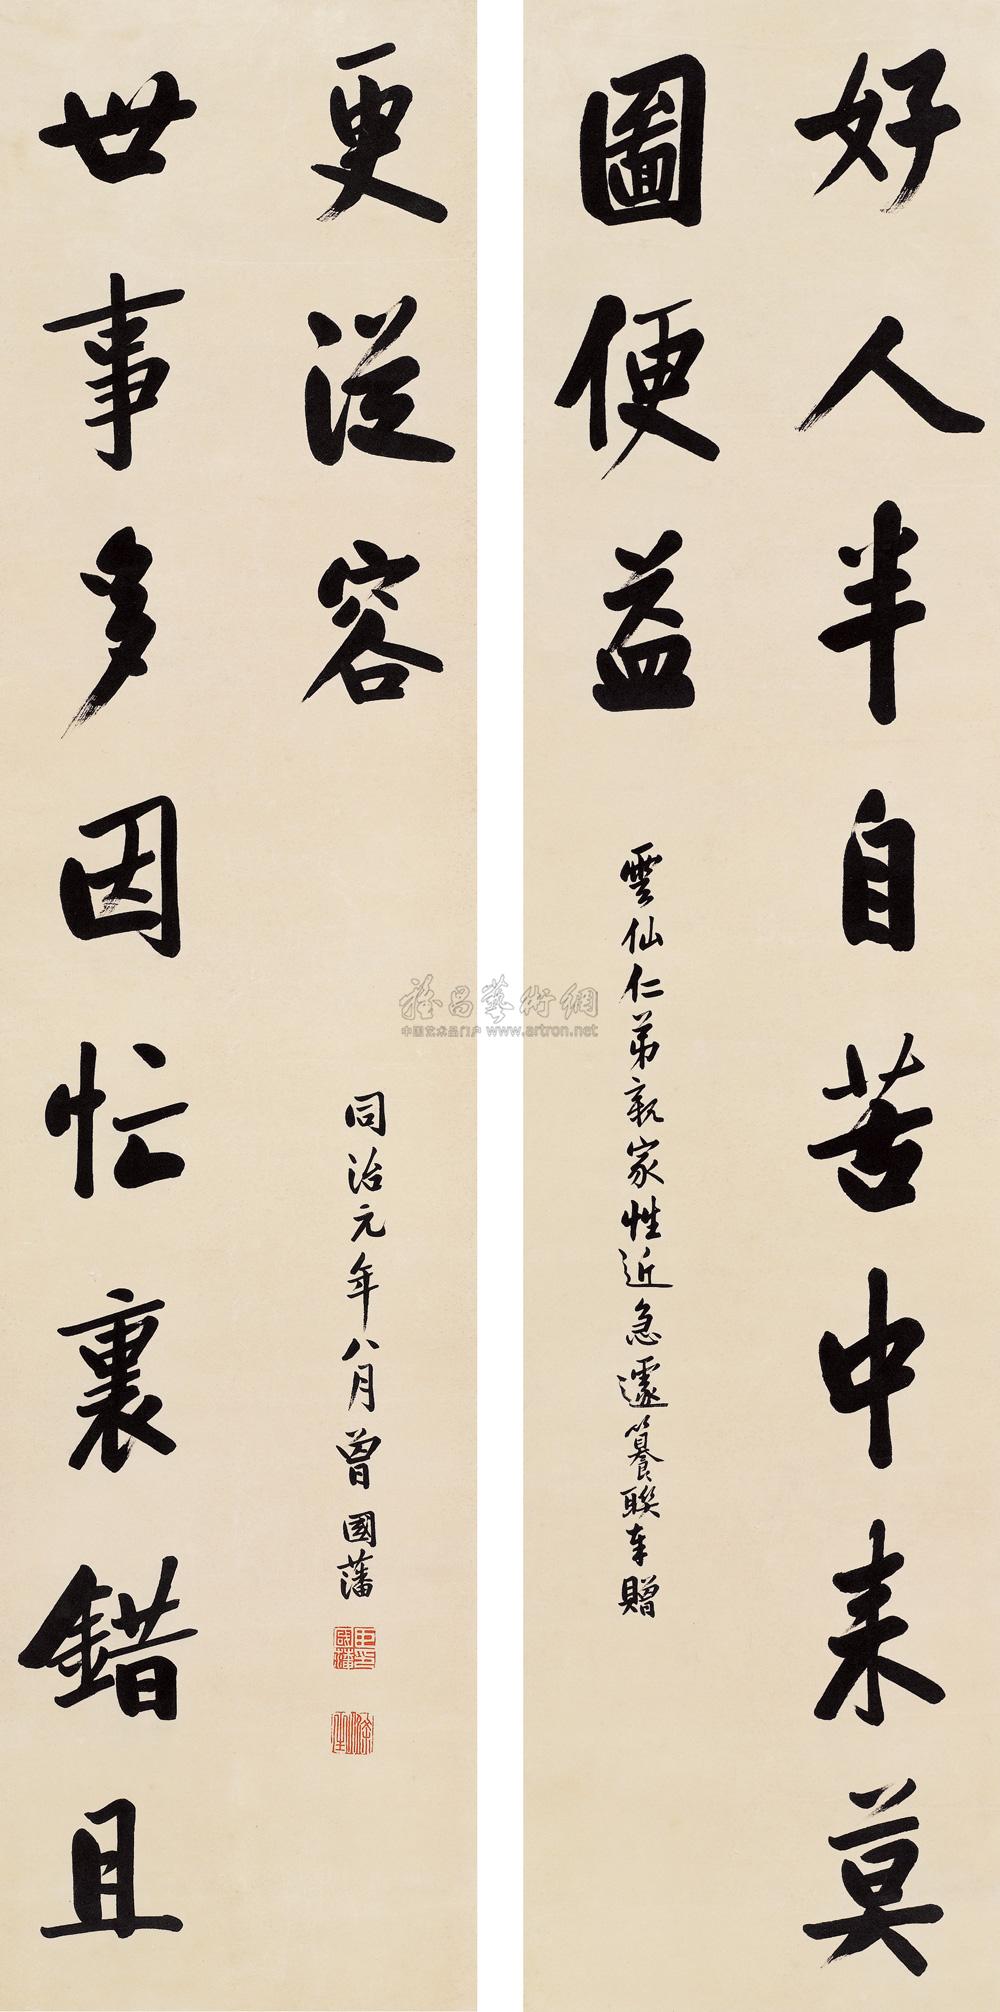 好人半自苦中来莫
圖便益
雲仙仁弟親家性近急遽籑聯奉贈
世事多因忙裏錯且
更從容
同治元年八月曾國藩
滌生
雅昌藝術網
中国艺术品门户 www.artron.net